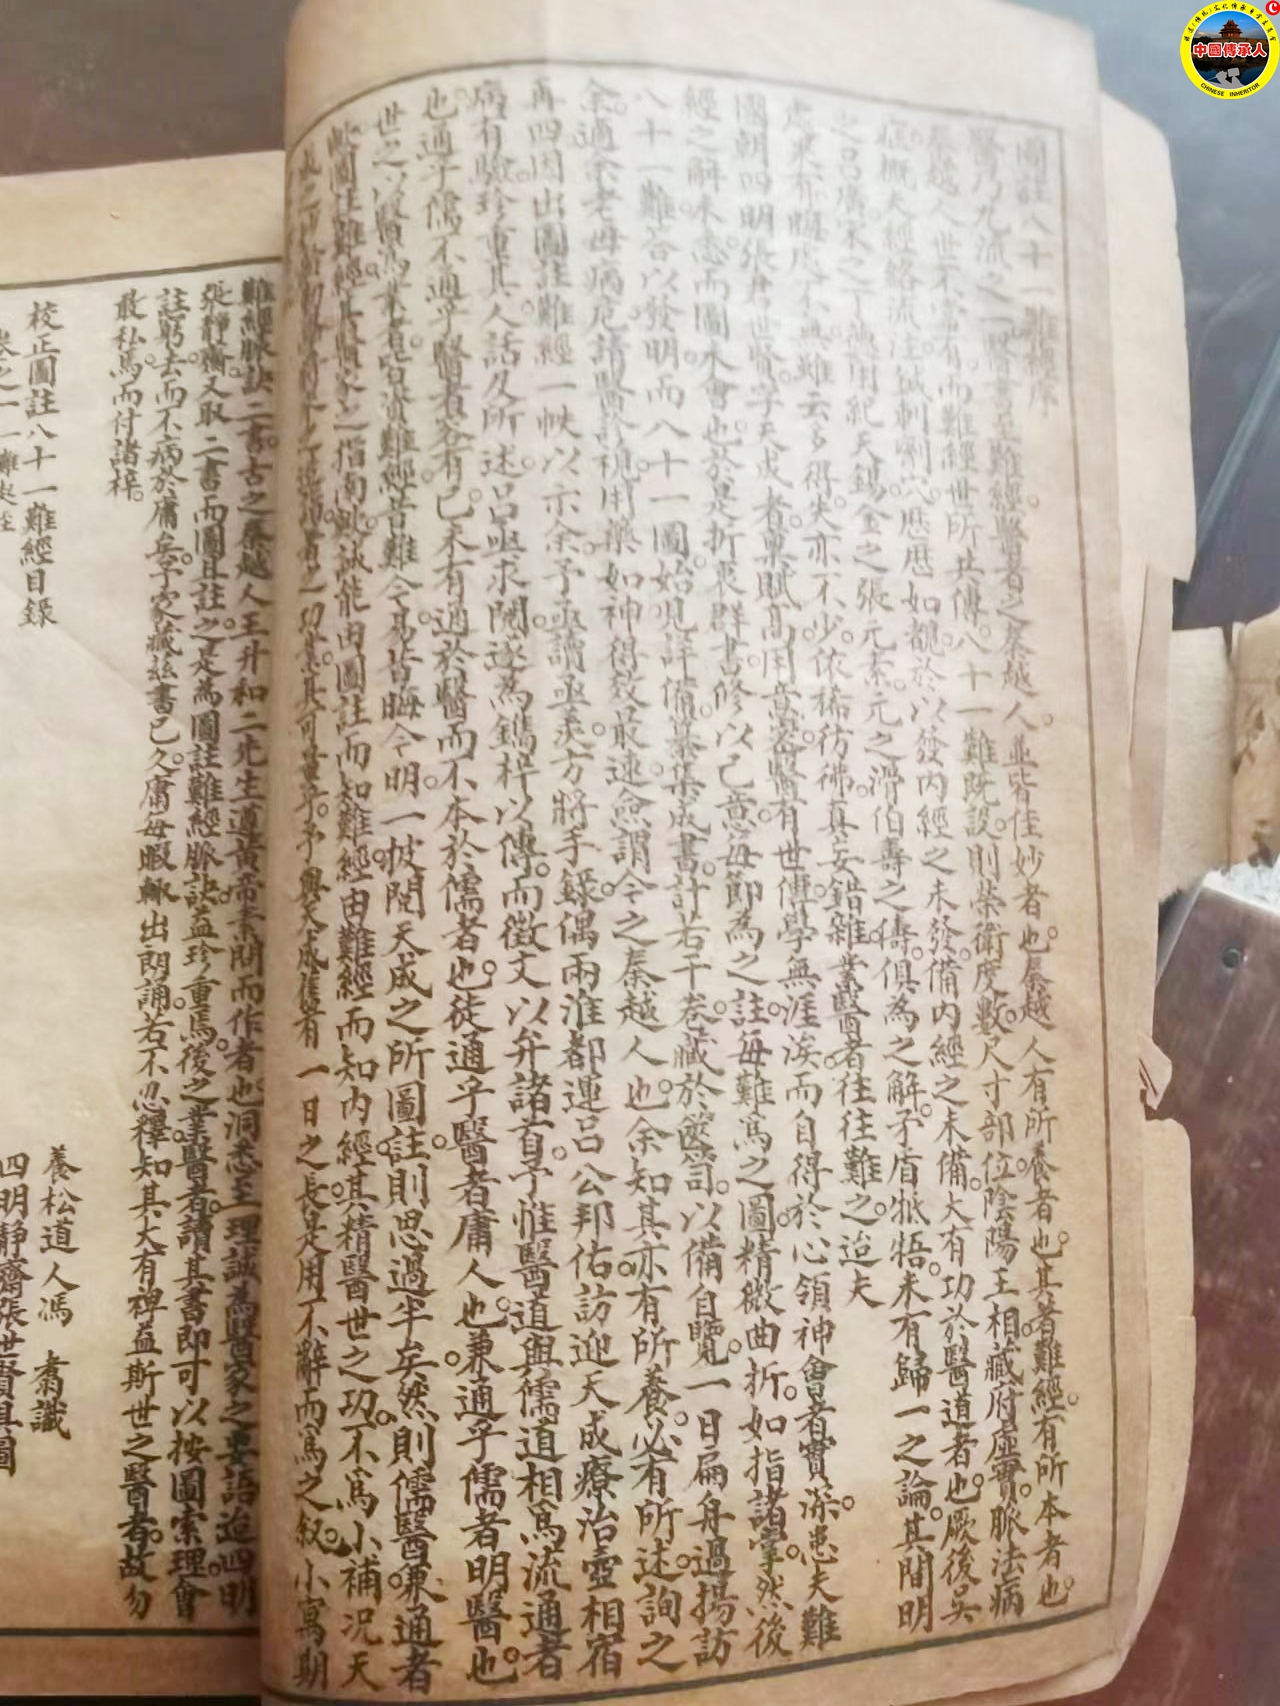 圖註八十一難經序
醫乃九流之一醫書至難經醫者之秦越人並皆佳妙者也秦越人有所養者也其著難經有所本者也
秦越人世不常有而難經世所共傳八十一難既設則榮衛度數尺寸部位陰陽王相藏府虛實脈法病
症概夫經絡流注鍼刺劑穴歷歷如覩於以發內經之未發備內經之未備大有功於醫道者也厥後吳
之呂廣宋之丁德用紀天錫金之張元素元之滑伯壽之儔俱為之解矛盾牴牾未有歸一之論其間明
處果有晦處不無雖云多得失亦不少依稀彷彿真妄錯雜業醫者往往難之迨夫
國朝四明張君世賢字天成者稟賦高用意密醫有世傳學無涯涘而自得於心領神會者實深患夫難
經之解未悉而圖未會也於是折衷群書修以己意每節為之註每難為之圖精微曲折如指諸掌然後
八十一難答以發明而八十一圖始見詳備纂集成書計若干卷藏於篋笥以備自覽一日扁舟過揚訪
余適余老母病危請醫診視用藥如神得效最速僉謂今之秦越人也余知其亦有所養必有所述詢之
再四因出圖註難經一帙以示余予亟讀亟羨方將手錄偶兩淮都運呂公邦佑訪迎天成療治壺相宿
病有驗珍重其人話及所述呂亟求閱遂為鐫梓以傳而徵文以弁諸首予惟醫道與儒道相為流通者
也通乎儒不通乎醫者容有已未有通於醫而不本於儒者也徒通乎醫者庸人也兼通乎儒者明醫也
世之以醫為業者容資難經昔難今易昔晦今明一披閱天成之所圖註則思過半矣然則儒醫兼通者
歟圖註難經其醫家之指南歟誠能由圖註而知難經由難經而知內經其精醫世之功不為小補況天
之功其可量乎予與天成隹有一日之長是用不辭而為之叙小寓期
難經脈訣二書古之秦越人王升和二先生遵黃帝素問而作者也洞悉至理誠為醫家之要語迨四明
張靜齋又取二書而圖且註之是為圖註難經脈訣益珍重焉後之業醫者讀其書即可以按圖索理會
註躬去而不病於庸矣予家藏茲書已久庸每暇輒出朗誦若不忍釋知其大有裨益斯世之醫者故勿
敢私焉而付諸梓
養松道人馮 翥識
校正圖註八十一難經目錄
四明靜齋張世賢具圖
卷之一 一難起至
中國傳承人
CHINESE INHERITOR